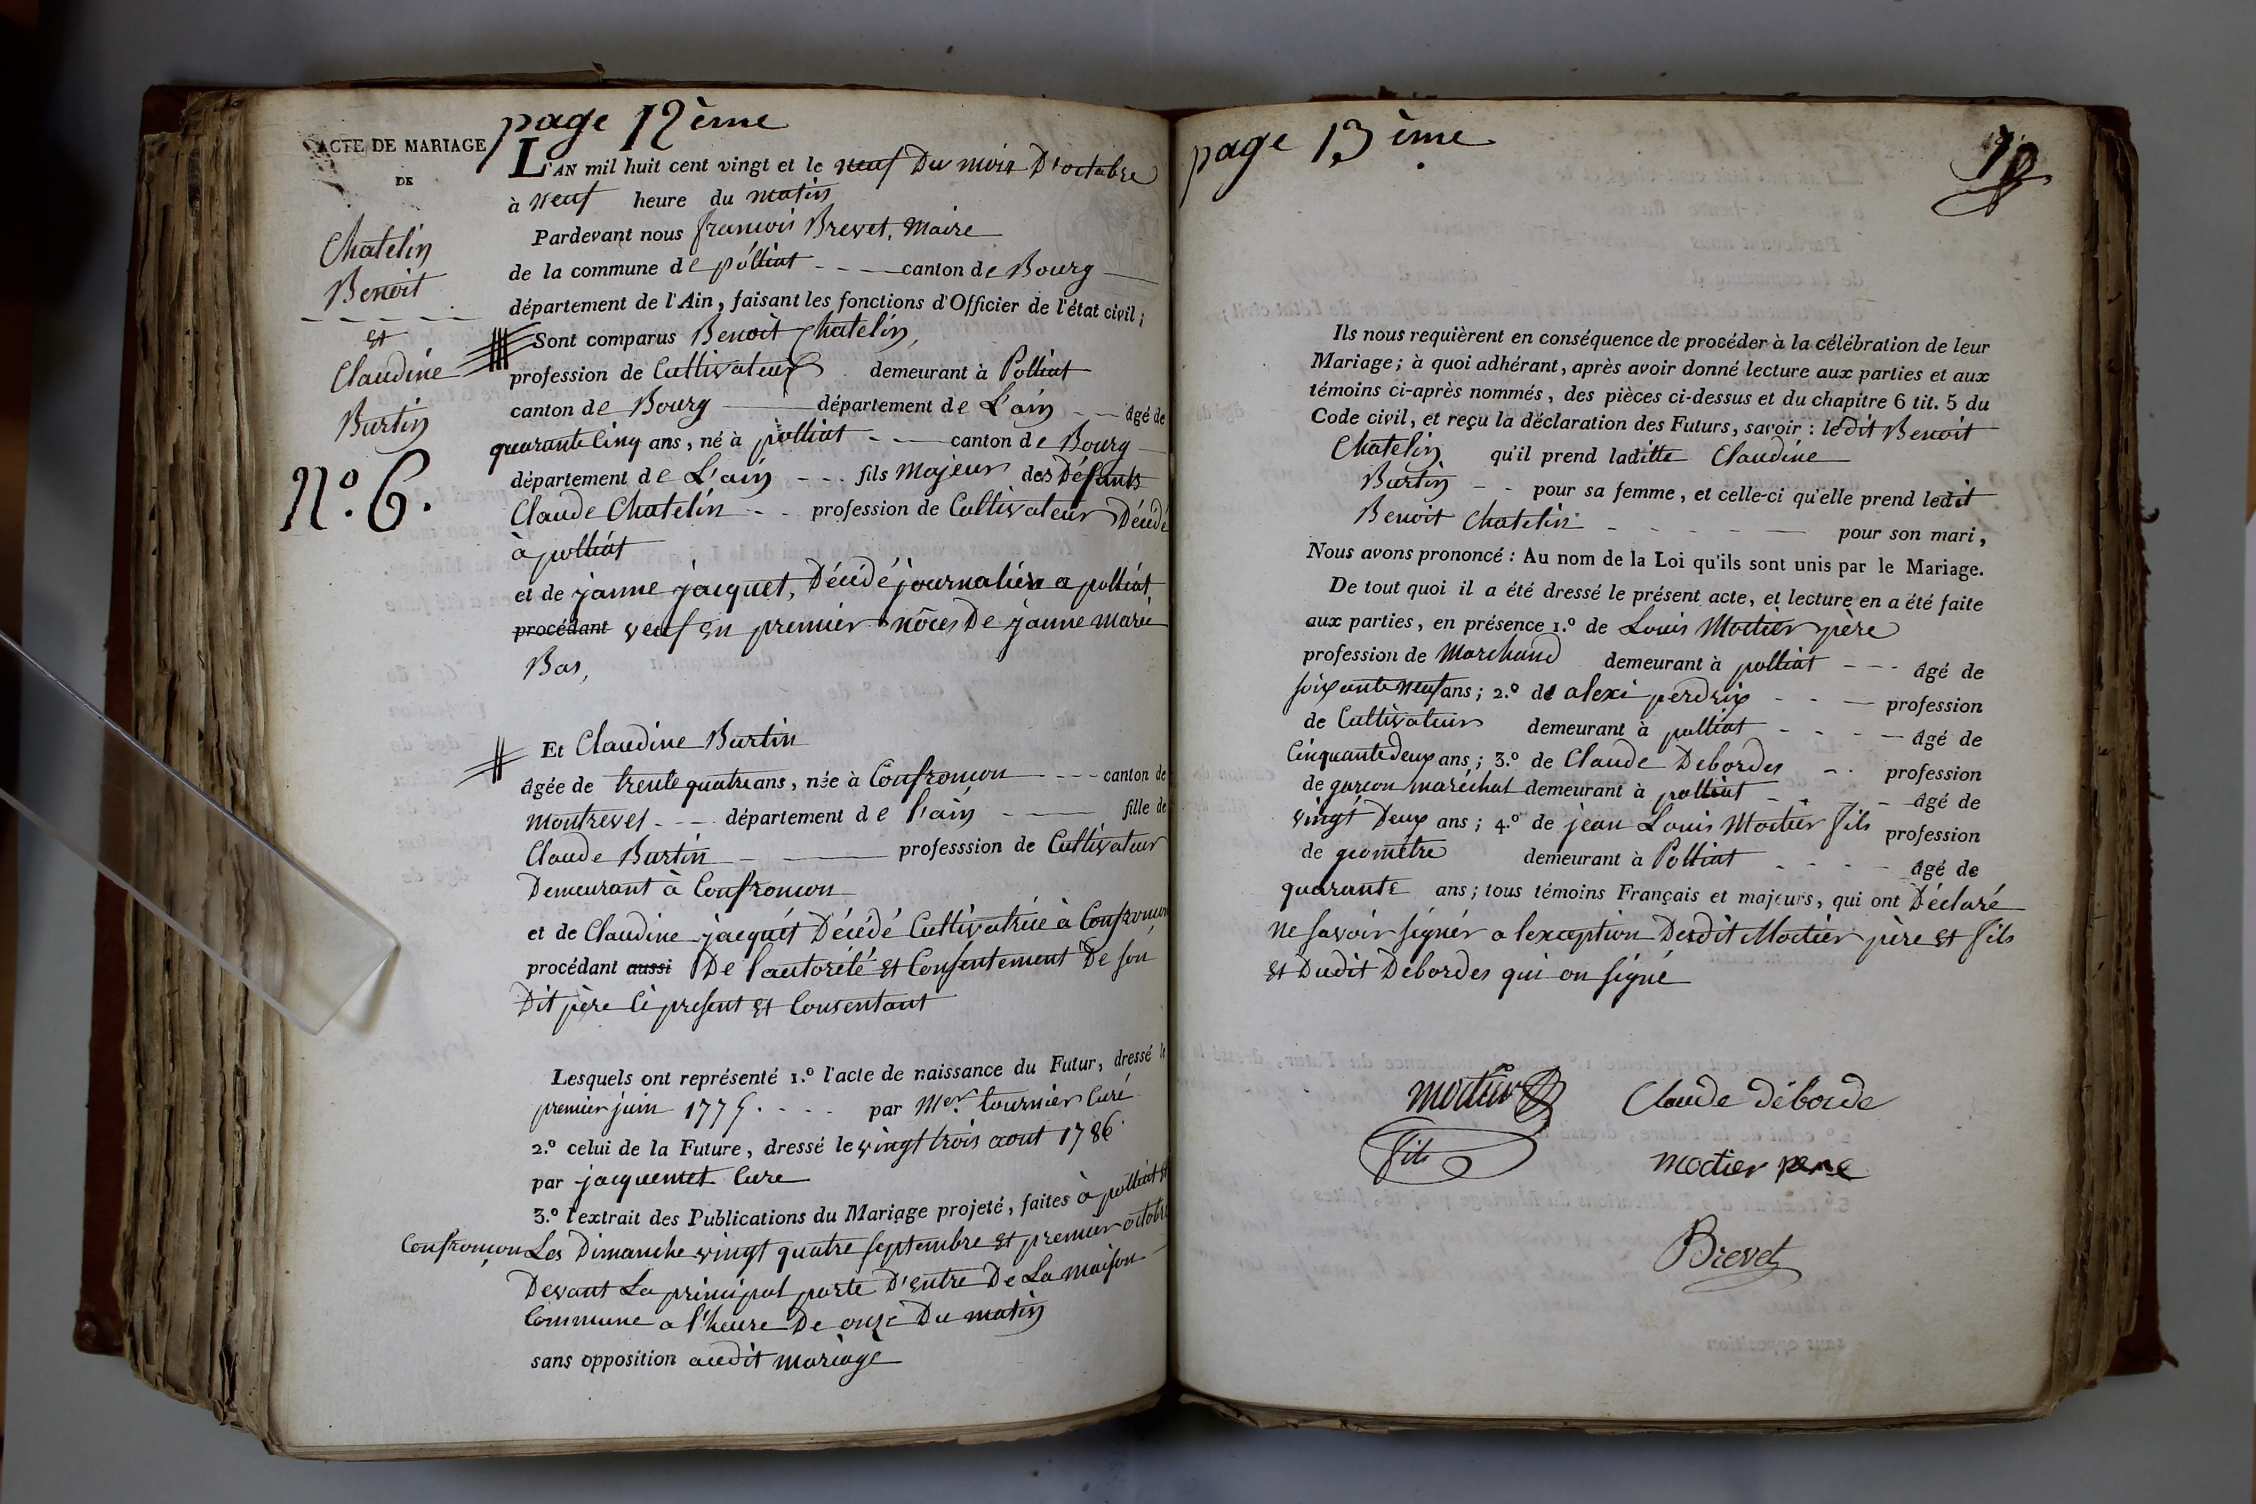 page 12ème
ACTE DE MARIAGE
DE
Chatelin
Benoit
et
Claudine
Burtin
N.º 6.
L'AN mil huit cent vingt et le neuf Du mois D'octobre
à neuf heure du matin
Pardevant nous francois Brevet, Maire
de la commune de pólliat - - - canton de Bourg
département de l'Ain, faisant les fonctions d'Officier de l'état civil;
Sont comparus Benoit Chatelin,
profession de Cultivateur demeurant à Polliat
canton de Bourg département de L'ain - - âgé de
quarante Cinq ans, né à polliat - - canton de Bourg
département de L'ain - - - fils Majeur des Défunts
Claude Chatelin - - profession de Cultivateur Décédé
à polliat
et de janne jacquet, Décédé journalière a polliat,
procédant veuf en premier nôces De janne marie
Bas,
Et Claudine Burtin
âgée de trente quatre ans, née à Confronçon - - - canton de
montrevel - - - département de l'ain fille de
Claude Burtin - professsion de Cultivateur
Demeurant à Confronçon
et de Claudine jacquet Décédé Cultivatrice à Confronçon
procédant aussi De l'autorété et Consentement De son
Dit père Ci présent et Consentant
Lesquels ont représenté 1.º l'acte de naissance du Futur, dressé le
premier juin 1775. - - - par Mer. tournier Curé
2.º celui de la Future, dressé le vingt trois aout 1786.
par jacquemet Cure
3.º l'extrait des Publications du Mariage projeté, faites à polliat et
Confronçon Les Dimanche vingt quatre septembre et premier octobre
Devant La principal porte D'entre De La maison
Commune a l'heure De onze Du matin
sans opposition audit mariage
page 13ème
Ils nous requièrent en conséquence de procéder à la célébration de leur
Mariage; à quoi adhérant, après avoir donné lecture aux parties et aux
témoins ci-après nommés, des pièces ci-dessus et du chapitre 6 tit. 5 du
Code civil, et reçu la déclaration des Futurs, savoir: ledit Benoit
Chatelin qu'il prend laditte Claudine
Burtin - - pour sa femme, et celle-ci qu'elle prend ledit
Benoit Chatelin - - - - pour son mari,
Nous avons prononcé: Au nom de la Loi qu'ils sont unis par le Mariage.
De tout quoi il a été dressé le présent acte, et lecture en a été faite
aux parties, en présence 1.º de Louis Moctier père
profession de Marchand demeurant à polliat - - - âgé de
soixante neuf ans; 2.º de alexi perdrix - - - profession
de Cultivateur demeurant à polliat - - - - âgé de
Cinquante deux ans; 3.º de Claude Debordes - - profession
de garcon maréchal demeurant à polliat - - - âgé de
vingt Deux ans; 4.º de jean Louis Moctier fils profession
de géomètre demeurant à Polliat - - - - âgé de
quarante ans; tous témoins Français et majeurs, qui ont Déclaré
ne savoir signér a lexception Desdit Moctier père et fils
et Dudit Debordes qui on signé
moctier
fils
Claude déborde
moctier pere
Brevet